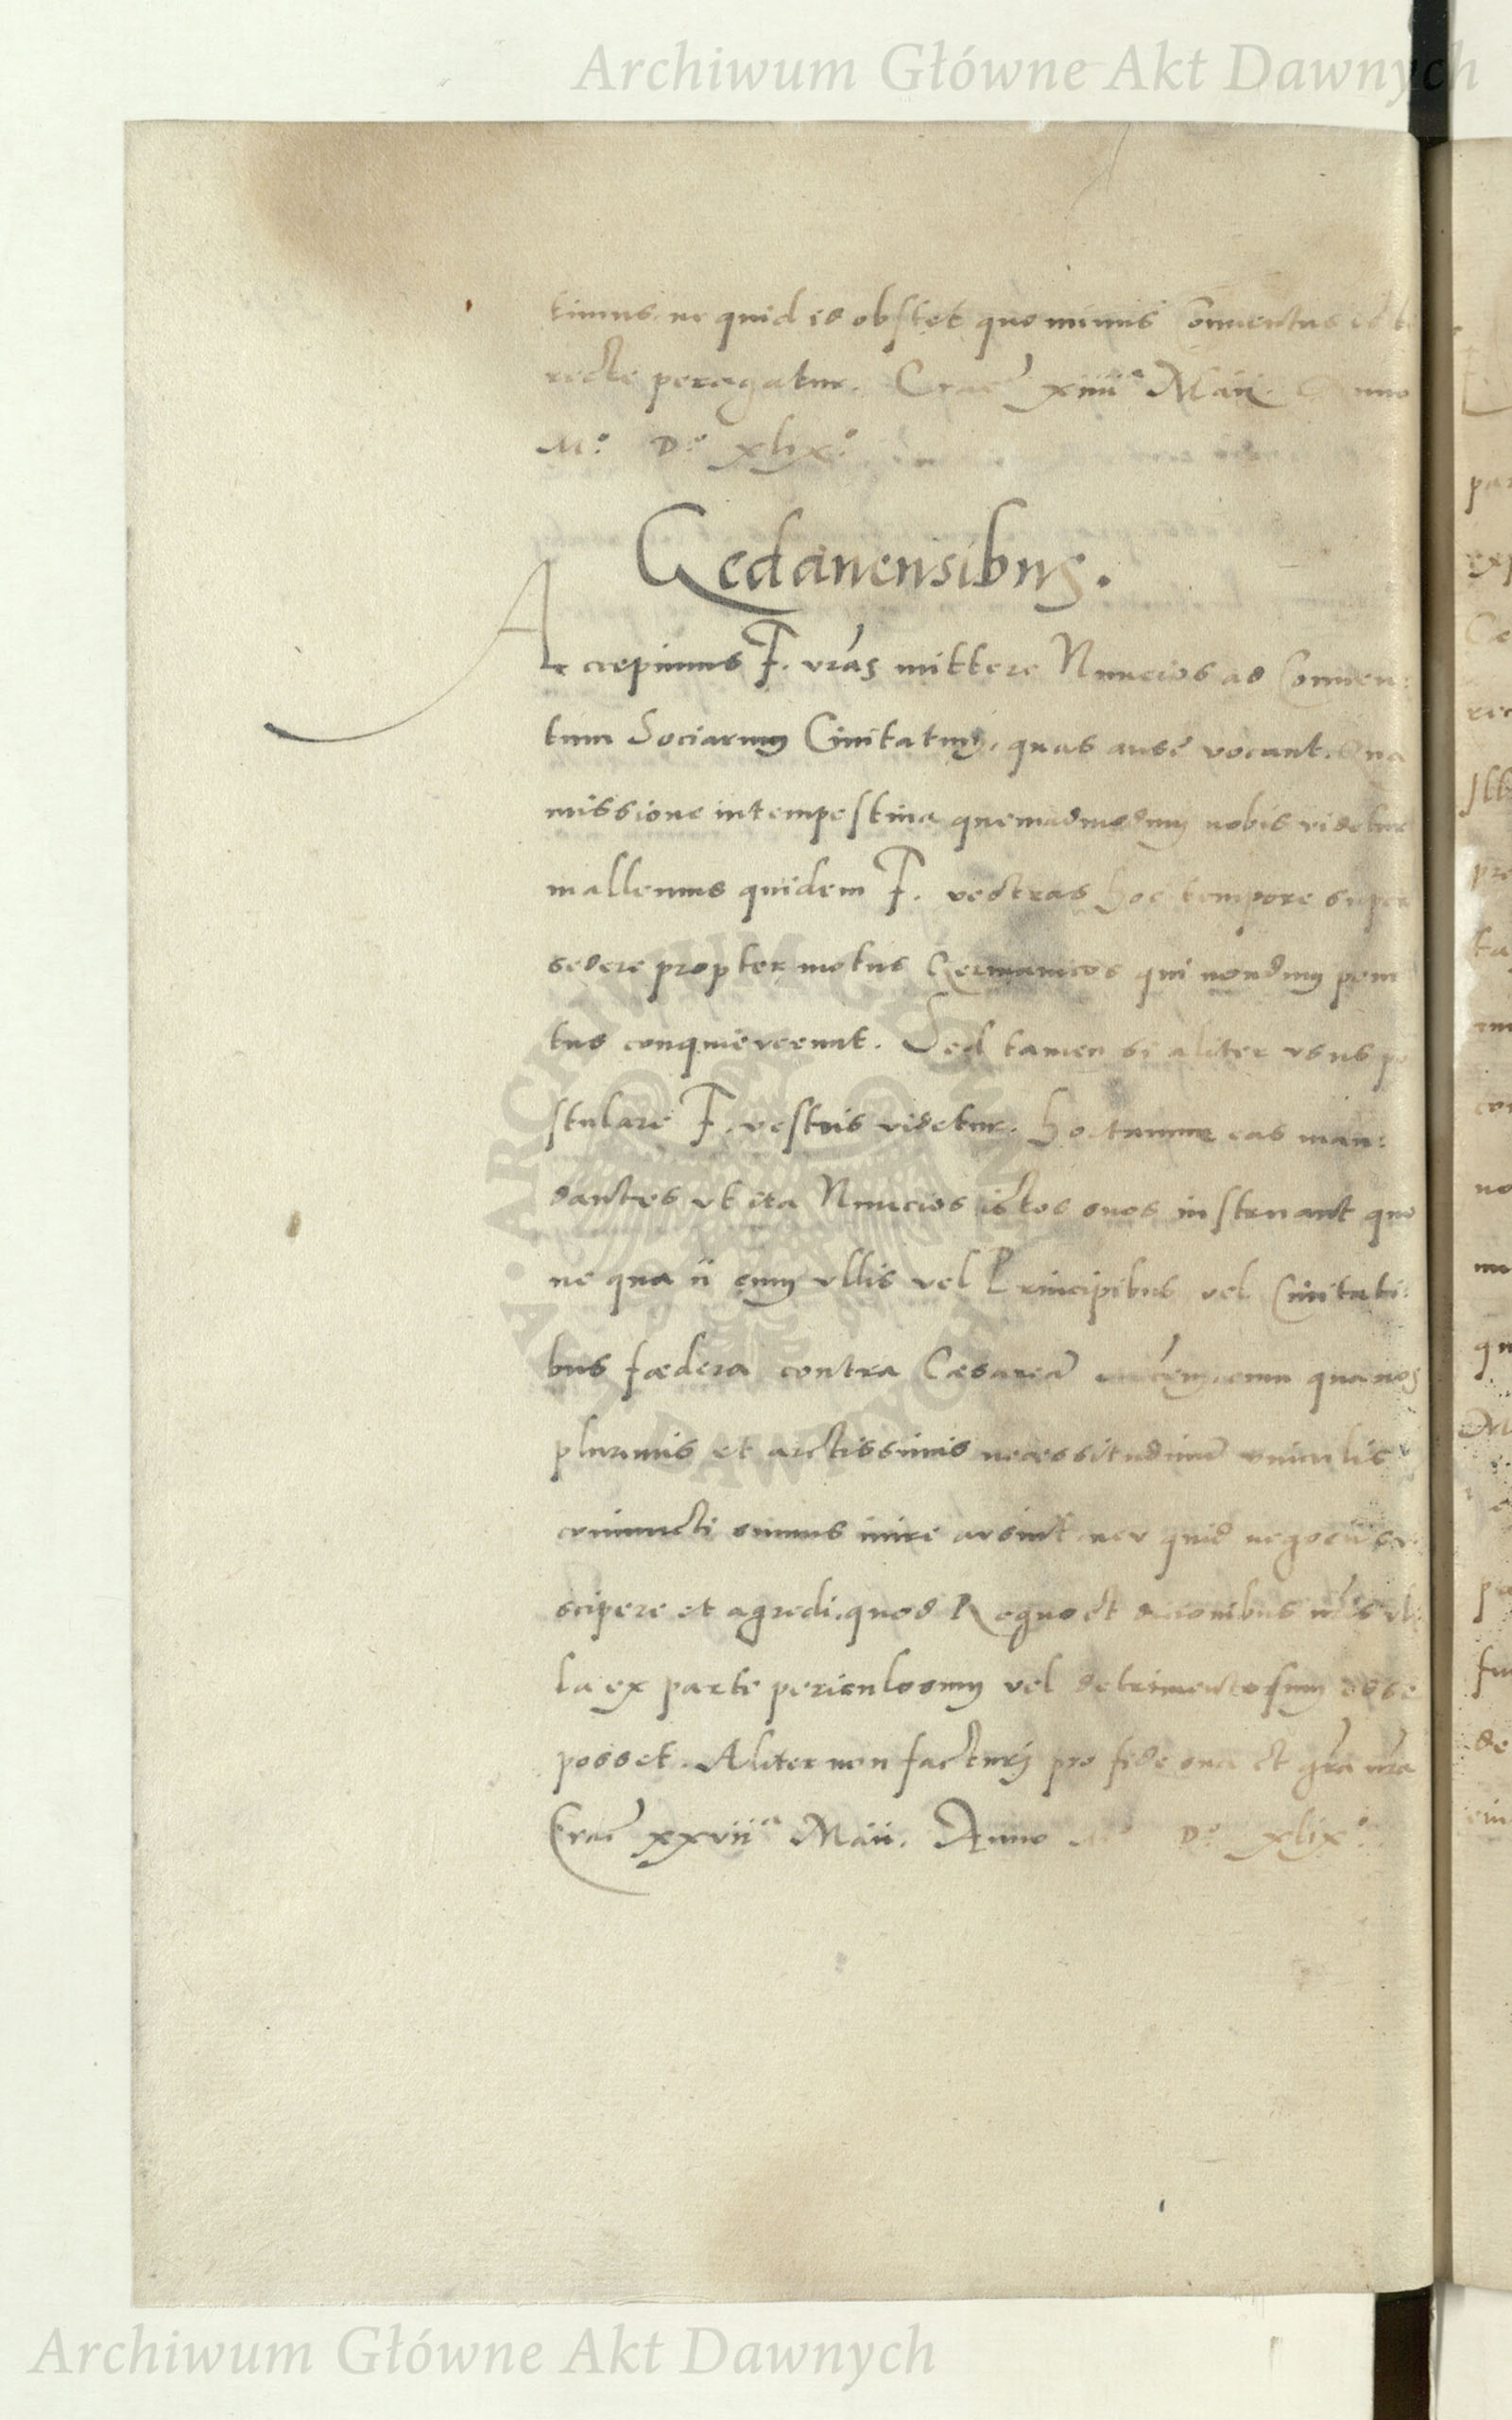 Archiwum Główne Akt Dawnych
timus. ne quid is obstet quominus Conventus
recte peragatur. Crac̃ xiiii.ᵃ Maii. Anno
M.º D.º xlix.º
Gedanensibus.
Accepimus F. vr̃as mittere Nuncios ad Conven:
tum Sociarum Civitatum, quas ansẽ vocant. Qua
missione intempestiva quemadmodum nobis videtur
mallemus quidem F. vestras hoc tempore super
sedere propter motus Germanicos qui nondum peni
tus conquieverunt. Sed tamen si aliter usus po
stulare F. vestris videtur. Hortamur eas man:
dantes ut ita Nuncios istos suos instruant quo
ne qua ii cum ullis vel Principibus vel Civitati:
bus fœdera contra Cæsareã cum qua nos
plurimis et arctissimis necessitudinũ vinculis
coniuncti sumus inire ausint nev quid negocii su
scipere et agredi, quod Regno et dicionibus nr̃is ul:
la ex parte periculosum vel detrimentosum esse
posset. Aliter non facturi pro fide sua et gr̃a nr̃a
Crac̃ xxvii ᵃ Maii. Anno M.º D.º xlix.º
ARCHIWUM GŁÓWNE AKT DAWNYCH
Archiwum Główne Akt Dawnych